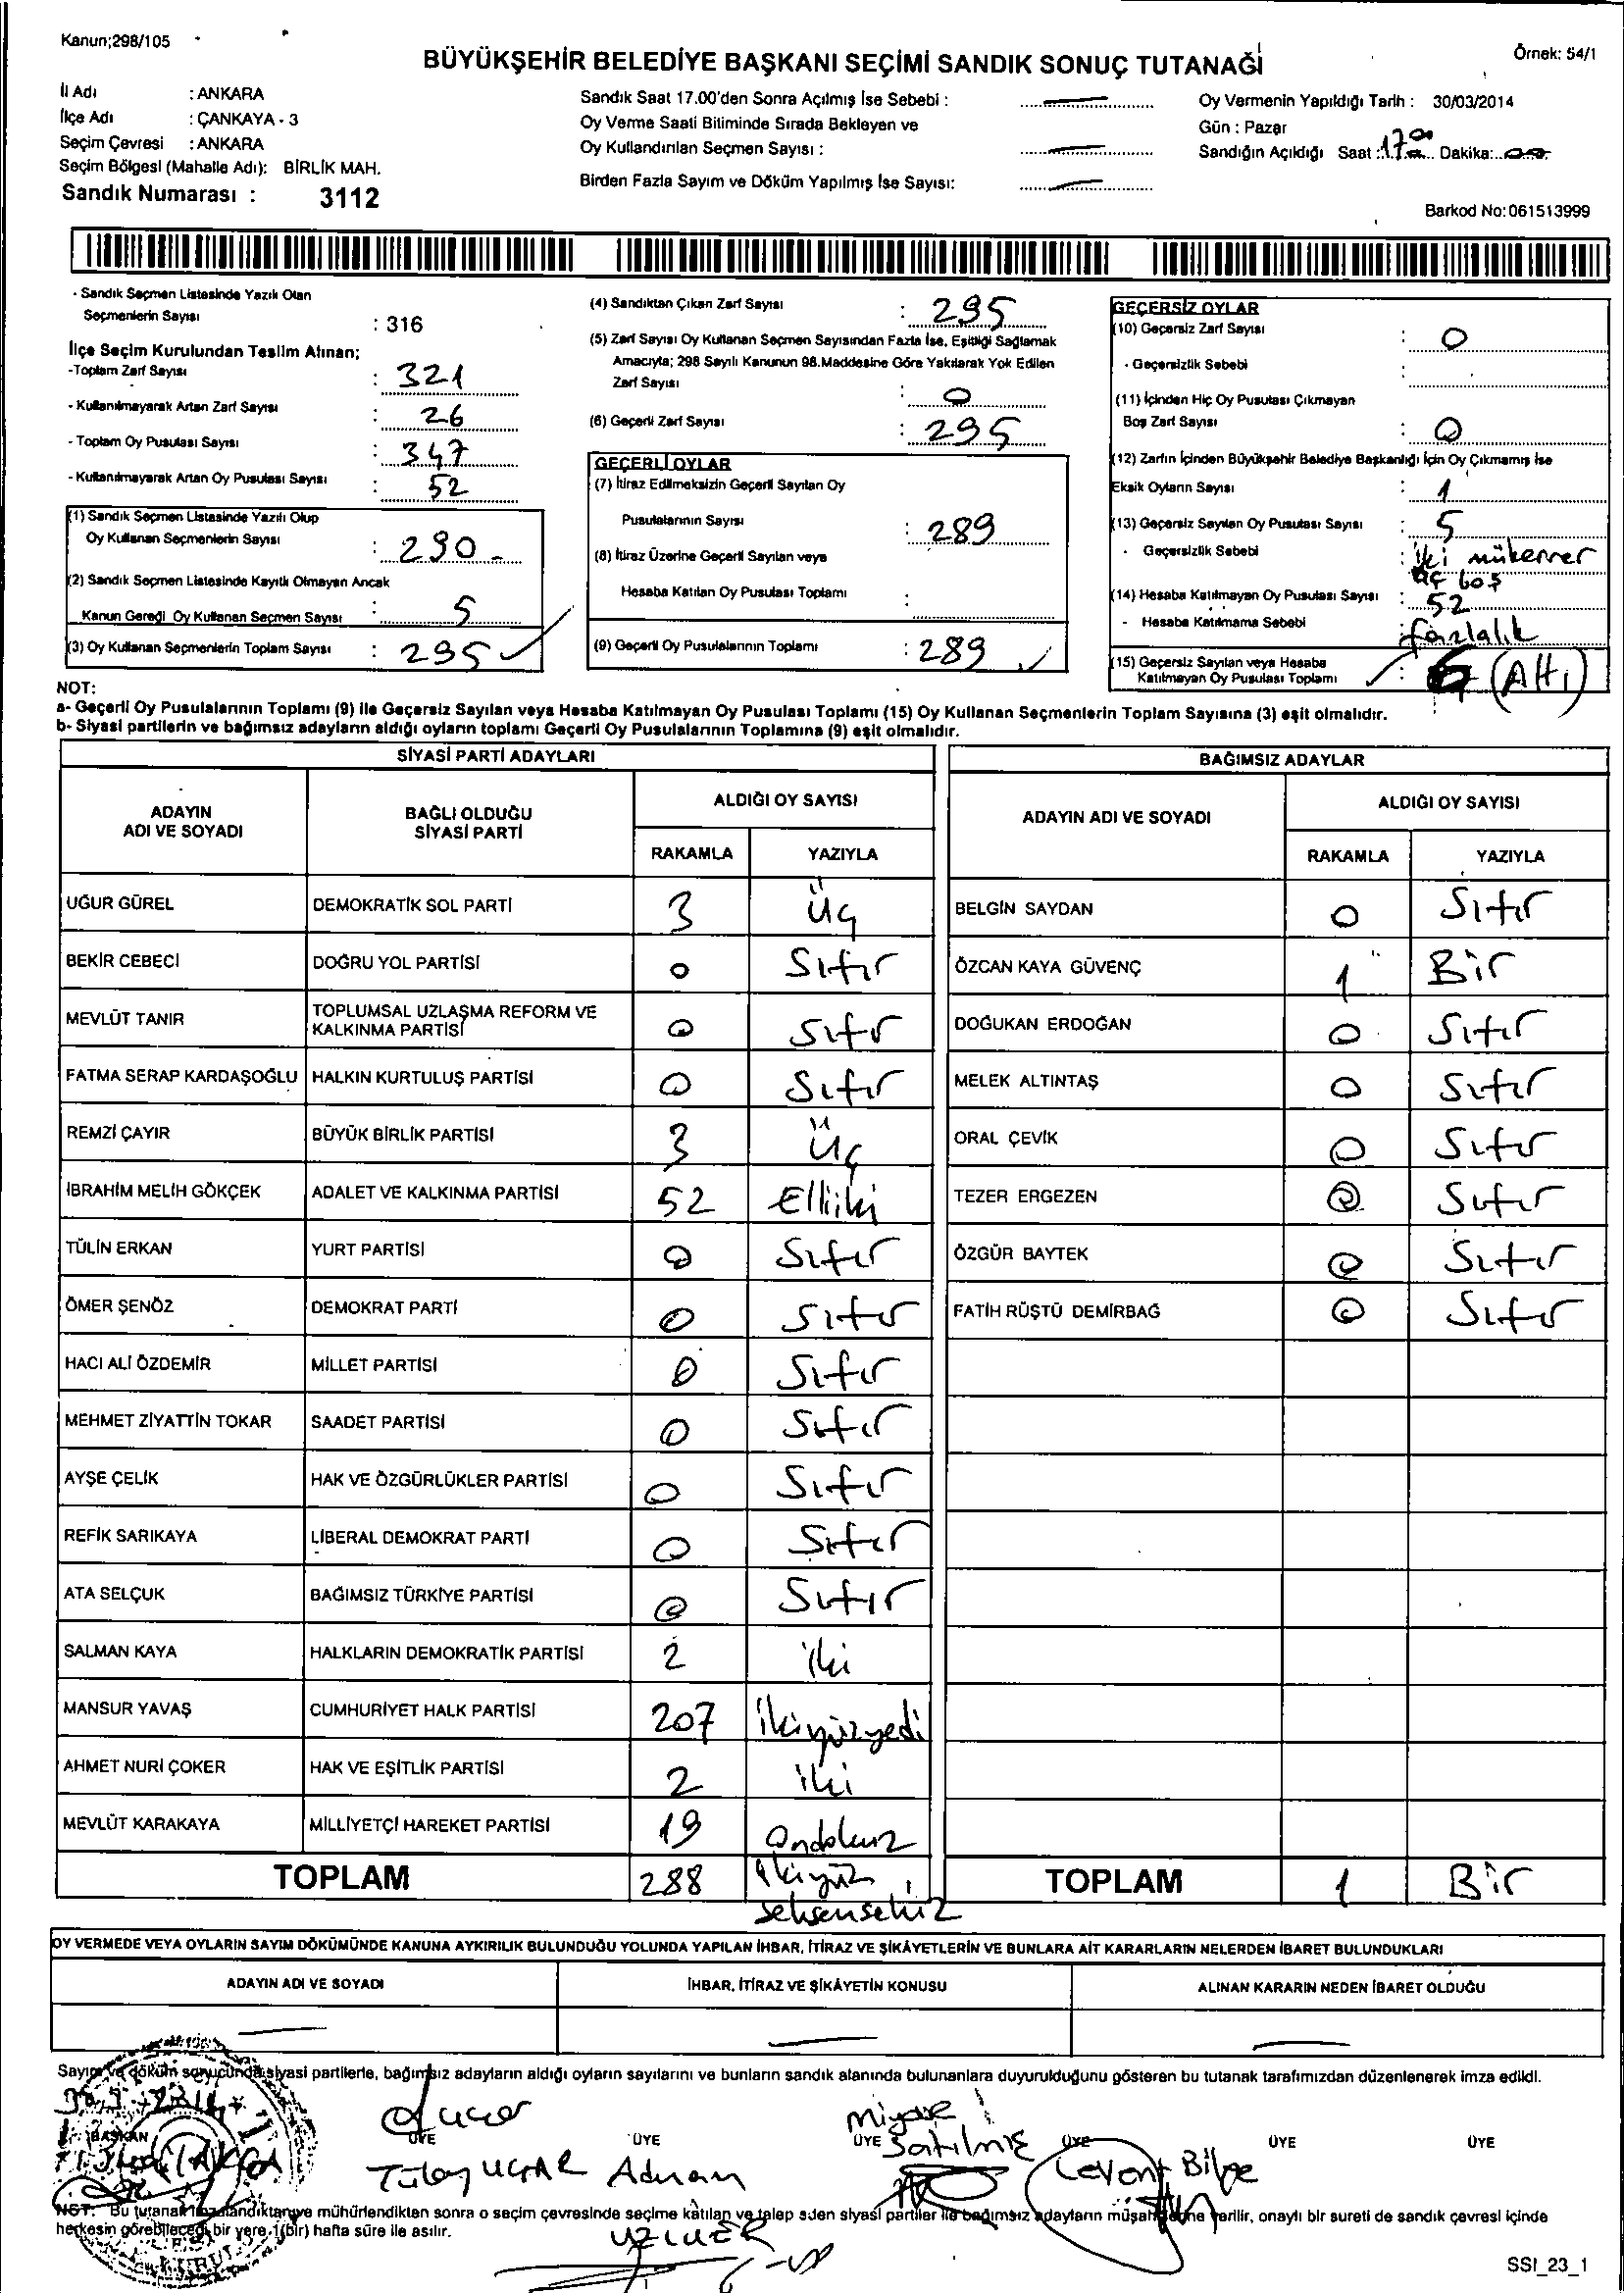 Kanun;298/105
Örnek: 54/1
BÜYÜKŞEHİR BELEDİYE BAŞKANI SEÇİMİ SANDIK SONUÇ TUTANAĞI
İl Adı : ANKARA
İlçe Adı : ÇANKAYA - 3
Seçim Çevresi : ANKARA
Seçim Bölgesi (Mahalle Adı): BİRLİK MAH.
Sandık Numarası : 3112
Sandık Saat 17.00'den Sonra Açılmış İse Sebebi :
Oy Verme Saati Bitiminde Sırada Bekleyen ve
Oy Kullandırılan Seçmen Sayısı :
Birden Fazla Sayım ve Döküm Yapılmış İse Sayısı:
Oy Vermenin Yapıldığı Tarih : 30/03/2014
Gün : Pazar
Sandığın Açıldığı Saat : 17 Dakika:
Barkod No:061513999
- Sandık Seçmen Listesinde Yazılı Olan
Seçmenlerin Sayısı : 316
İlçe Seçim Kurulundan Teslim Alınan;
-Toplam Zarf Sayısı : 321
- Kullanılmayarak Artan Zarf Sayısı : 26
- Toplam Oy Pusulası Sayısı : 347
- Kullanılmayarak Artan Oy Pusulası Sayısı : 52
(1) Sandık Seçmen Listesinde Yazılı Olup
Oy Kullanan Seçmenlerin Sayısı : 290
(2) Sandık Seçmen Listesinde Kayıtlı Olmayan Ancak
Kanun Gereği Oy Kullanan Seçmen Sayısı : 5
(3) Oy Kullanan Seçmenlerin Toplam Sayısı : 295
(4) Sandıktan Çıkan Zarf Sayısı : 295
(5) Zarf Sayısı Oy Kullanan Seçmen Sayısından Fazla İse, Eşitliği Sağlamak
Amacıyla; 298 Sayılı Kanunun 98.Maddesine Göre Yakılarak Yok Edilen
Zarf Sayısı : 0
(6) Geçerli Zarf Sayısı : 295
GEÇERLİ OYLAR
(7) İtiraz Edilmeksizin Geçerli Sayılan Oy
Pusulalarının Sayısı : 289
(8) İtiraz Üzerine Geçerli Sayılan veya
Hesaba Katılan Oy Pusulası Toplamı :
(9) Geçerli Oy Pusulalarının Toplamı : 289
GEÇERSİZ OYLAR
(10) Geçersiz Zarf Sayısı : 0
- Geçersizlik Sebebi :
(11) İçinden Hiç Oy Pusulası Çıkmayan
Boş Zarf Sayısı : 0
(12) Zarfın İçinden Büyükşehir Belediye Başkanlığı İçin Oy Çıkmamış İse
Eksik Oyların Sayısı : 1
(13) Geçersiz Sayılan Oy Pusulası Sayısı : 5
- Geçersizlik Sebebi : iki mükerrer
üç boş
(14) Hesaba Katılmayan Oy Pusulası Sayısı : 52
- Hesaba Katılmama Sebebi : fazlalık
(15) Geçersiz Sayılan veya Hesaba
Katılmayan Oy Pusulası Toplamı : 6 (Altı)
NOT:
a- Geçerli Oy Pusulalarının Toplamı (9) ile Geçersiz Sayılan veya Hesaba Katılmayan Oy Pusulası Toplamı (15) Oy Kullanan Seçmenlerin Toplam Sayısına (3) eşit olmalıdır.
b- Siyasi partilerin ve bağımsız adayların aldığı oyların toplamı Geçerli Oy Pusulalarının Toplamına (9) eşit olmalıdır.
SİYASİ PARTİ ADAYLARI
ADAYIN ADI VE SOYADI
BAĞLI OLDUĞU SİYASİ PARTİ
ALDIĞI OY SAYISI
RAKAMLA YAZIYLA
UĞUR GÜREL DEMOKRATİK SOL PARTİ 3 Üç
BEKİR CEBECİ DOĞRU YOL PARTİSİ 0 Sıfır
MEVLÜT TANIR TOPLUMSAL UZLAŞMA REFORM VE KALKINMA PARTİSİ 0 Sıfır
FATMA SERAP KARDAŞOĞLU HALKIN KURTULUŞ PARTİSİ 0 Sıfır
REMZİ ÇAYIR BÜYÜK BİRLİK PARTİSİ 3 Üç
İBRAHİM MELİH GÖKÇEK ADALET VE KALKINMA PARTİSİ 52 Elliiki
TÜLİN ERKAN YURT PARTİSİ 0 Sıfır
ÖMER ŞENÖZ DEMOKRAT PARTİ 0 Sıfır
HACI ALİ ÖZDEMİR MİLLET PARTİSİ 0 Sıfır
MEHMET ZİYATTİN TOKAR SAADET PARTİSİ 0 Sıfır
AYŞE ÇELİK HAK VE ÖZGÜRLÜKLER PARTİSİ 0 Sıfır
REFİK SARIKAYA LİBERAL DEMOKRAT PARTİ 0 Sıfır
ATA SELÇUK BAĞIMSIZ TÜRKİYE PARTİSİ 0 Sıfır
SALMAN KAYA HALKLARIN DEMOKRATİK PARTİSİ 2 iki
MANSUR YAVAŞ CUMHURİYET HALK PARTİSİ 207 ikiyüzyedi
AHMET NURİ ÇOKER HAK VE EŞİTLİK PARTİSİ 2 iki
MEVLÜT KARAKAYA MİLLİYETÇİ HAREKET PARTİSİ 19 Ondokuz
TOPLAM 288 ikiyüz seksensekiz
BAĞIMSIZ ADAYLAR
ADAYIN ADI VE SOYADI
ALDIĞI OY SAYISI
RAKAMLA YAZIYLA
BELGİN SAYDAN 0 Sıfır
ÖZCAN KAYA GÜVENÇ 1 Bir
DOĞUKAN ERDOĞAN 0 Sıfır
MELEK ALTINTAŞ 0 Sıfır
ORAL ÇEVİK 0 Sıfır
TEZER ERGEZEN 0 Sıfır
ÖZGÜR BAYTEK 0 Sıfır
FATİH RÜŞTÜ DEMİRBAĞ 0 Sıfır
TOPLAM 1 Bir
OY VERMEDE VEYA OYLARIN SAYIM DÖKÜMÜNDE KANUNA AYKIRILIK BULUNDUĞU YOLUNDA YAPILAN İHBAR, İTİRAZ VE ŞİKÂYETLERİN VE BUNLARA AİT KARARLARIN NELERDEN İBARET BULUNDUKLARI
ADAYIN ADI VE SOYADI
İHBAR, İTİRAZ VE ŞİKÂYETİN KONUSU
ALINAN KARARIN NEDEN İBARET OLDUĞU
Sayım ve döküm sonucunda siyasi partilerle, bağımsız adayların aldığı oyların sayılarını ve bunların sandık alanında bulunanlara duyurulduğunu gösteren bu tutanak tarafımızdan düzenlenerek imza edildi.
BAŞKAN ÜYE ÜYE ÜYE ÜYE ÜYE ÜYE
Tülay UÇAR
Adnan
Satılmış
Levent Bilge
NOT: Bu tutanak mühürlendikten sonra o seçim çevresinde seçime katılan ve talep eden siyasi partiler ile bağımsız adayların müşahidlerine verilir, onaylı bir sureti de sandık çevresi içinde
herkesin görebileceği bir yere 1(bir) hafta süre ile asılır.
SSI_23_1